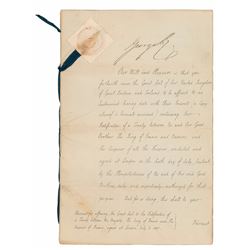 George R
Our Will and Pleasure is that you
forthwith cause the Great Seal of Our United Kingdom
of Great Britain and Ireland to be affixed to an
Instrument bearing date with these Presents (a Copy
whereof is hereunto annexed) containing Our
Ratification of a Treaty between Us and Our Good
Brother The King of France and Navarre, and
the Emperor of all the Russias, concluded and
signed at London on the Sixth day of July, Instant
by the Plenipotentiaries of Us and of Our said Good
Brothers, duly and respectively authorized for that
purpose. And for so doing this shall be your
Warrant
Warrant for affixing the Great Seal to the Ratification of
a Treaty between His Majesty, the King of France and the
Emperor of Russia, signed at London July 6. 1827.